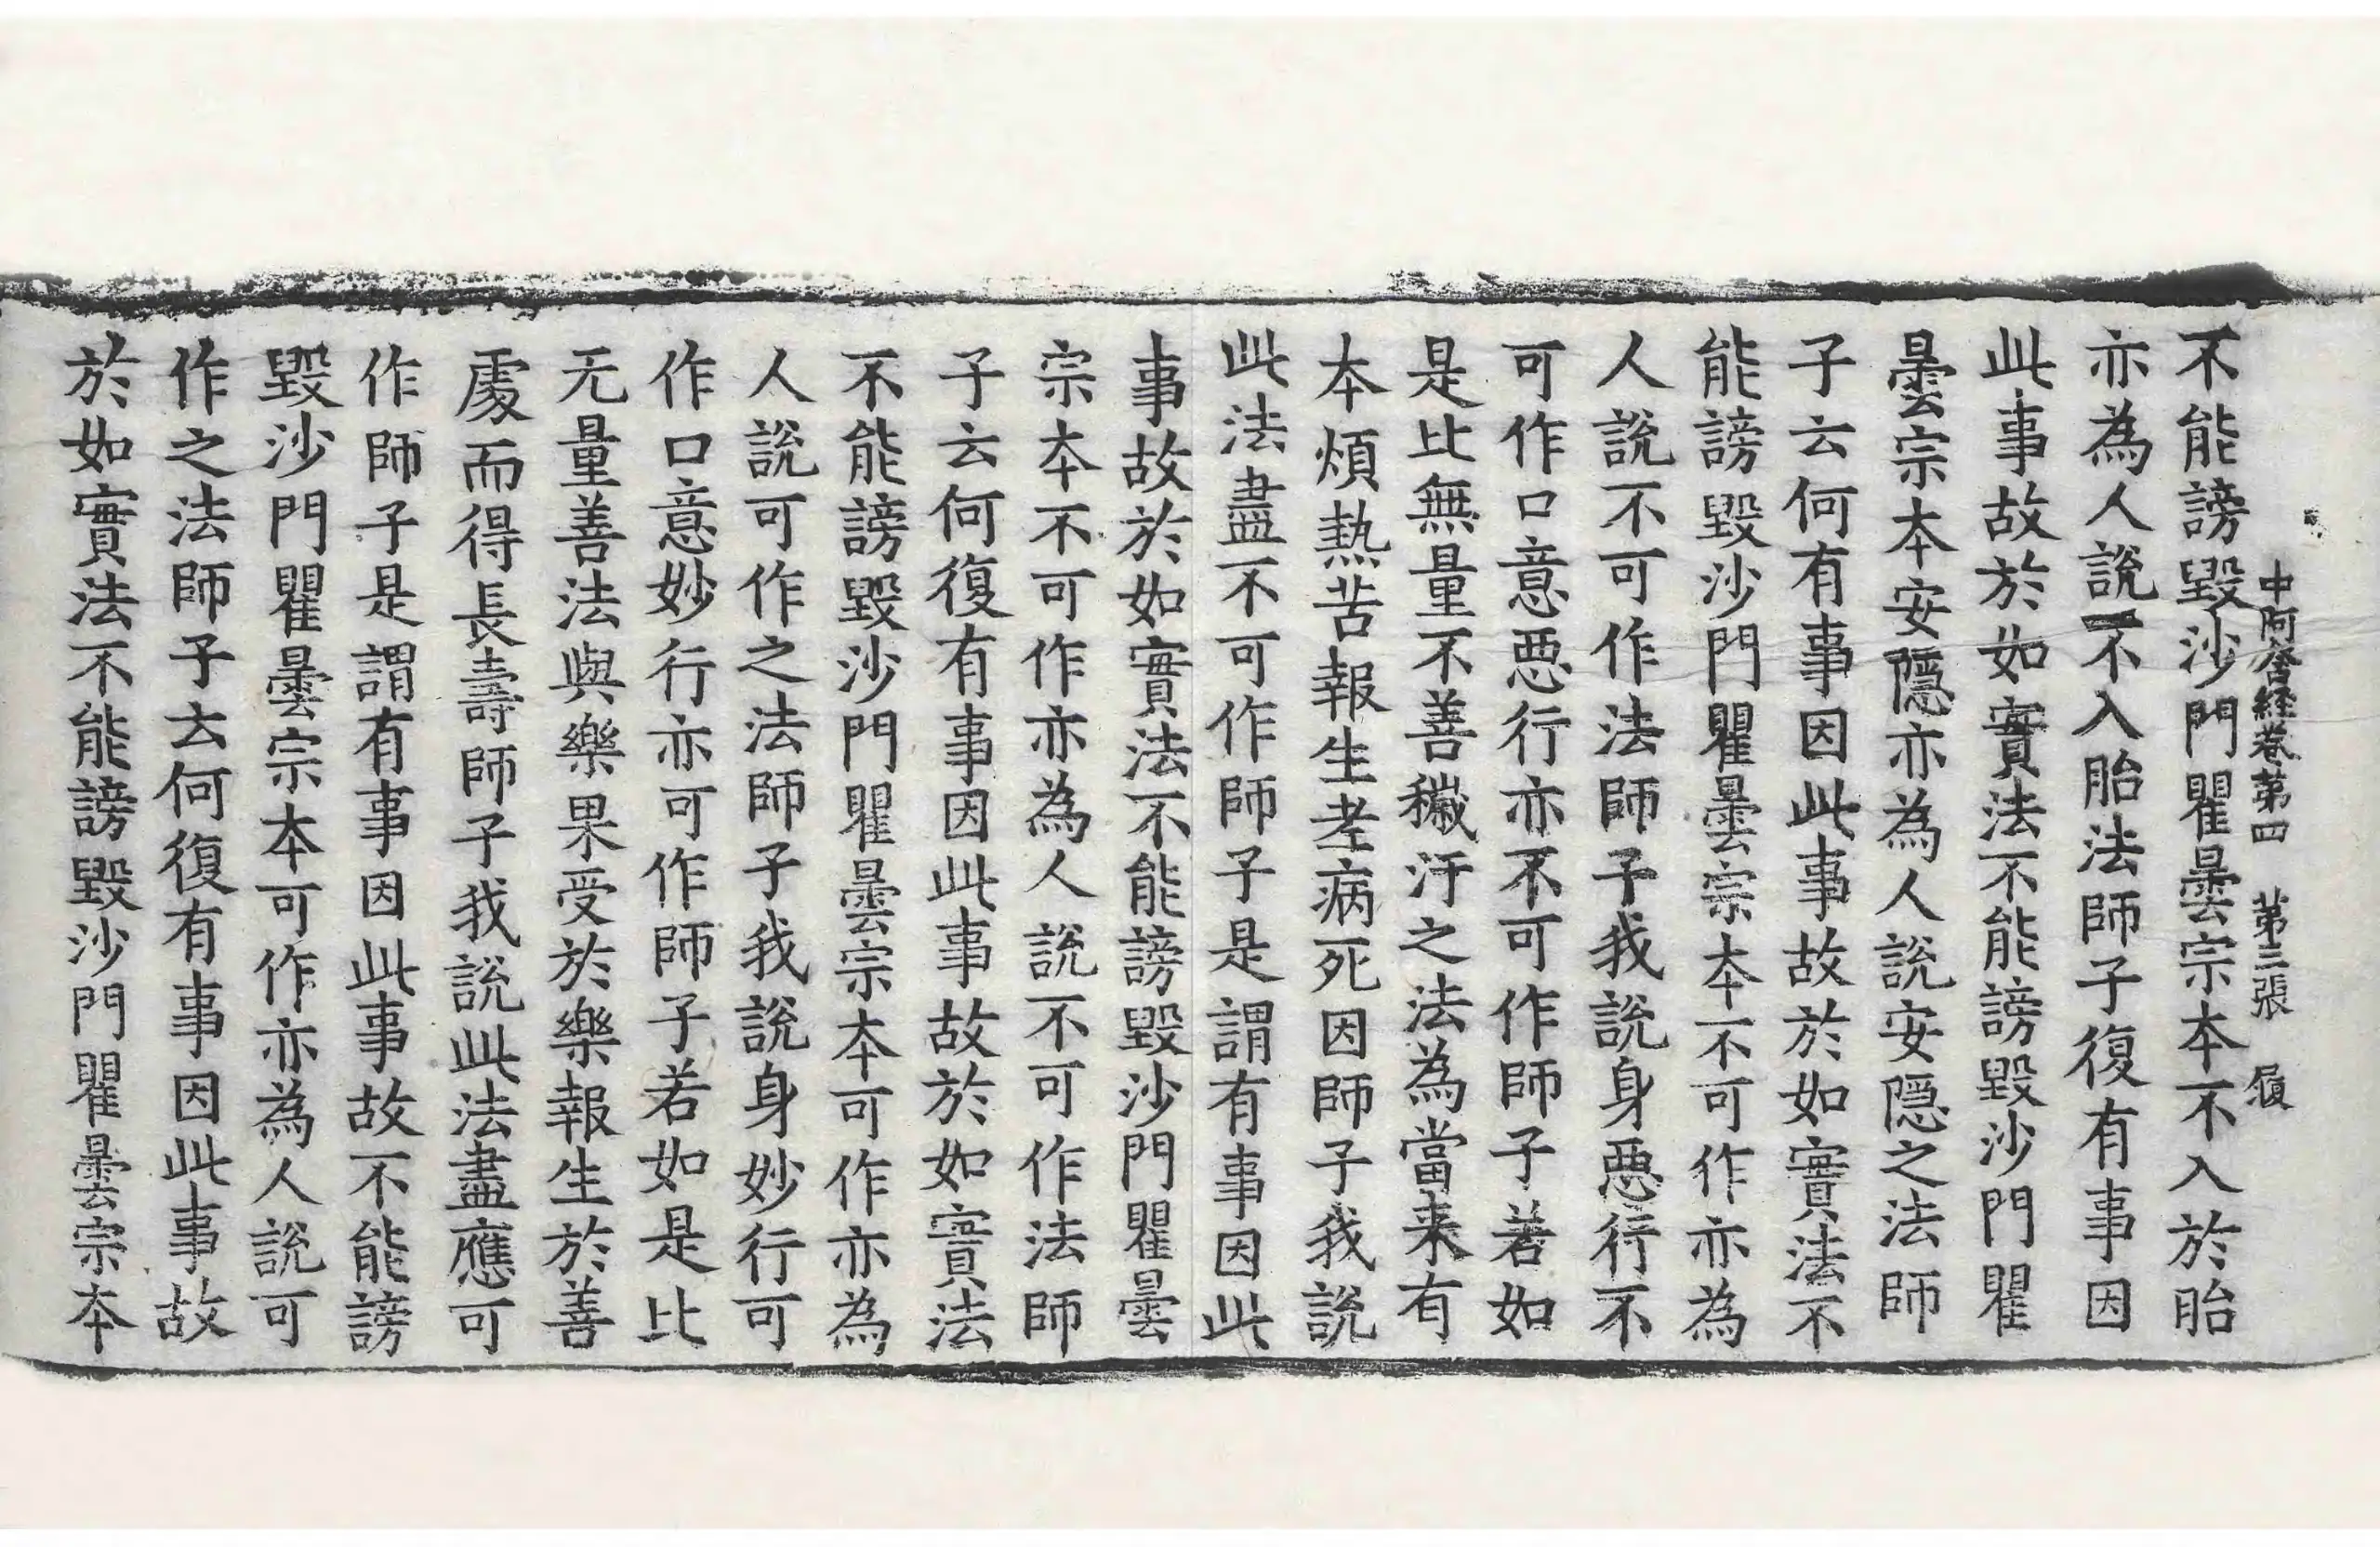 中阿含経卷第四 第三張 履
不能謗毀沙門瞿曇宗本不入於胎
亦為人說不入胎法師子復有事因
此事故於如實法不能謗毀沙門瞿
曇宗本安隱亦為人說安隱之法師
子云何有事因此事故於如實法不
能謗毀沙門瞿曇宗本不可作亦為
人說不可作法師子我說身惡行不
可作口意惡行亦不可作師子若如
是比無量不善穢汙之法為當来有
本煩熱苦報生老病死因師子我說
此法盡不可作師子是謂有事因此
事故於如實法不能謗毀沙門瞿曇
宗本不可作亦為人說不可作法師
子云何復有事因此事故於如實法
不能謗毀沙門瞿曇宗本可作亦為
人說可作之法師子我說身妙行可
作口意妙行亦可作師子若如是比
无量善法與樂果受於樂報生於善
處而得長壽師子我說此法盡應可
作師子是謂有事因此事故不能謗
毀沙門瞿曇宗本可作亦為人說可
作之法師子去何復有事因此事故
於如實法不能謗毀沙門瞿曇宗本